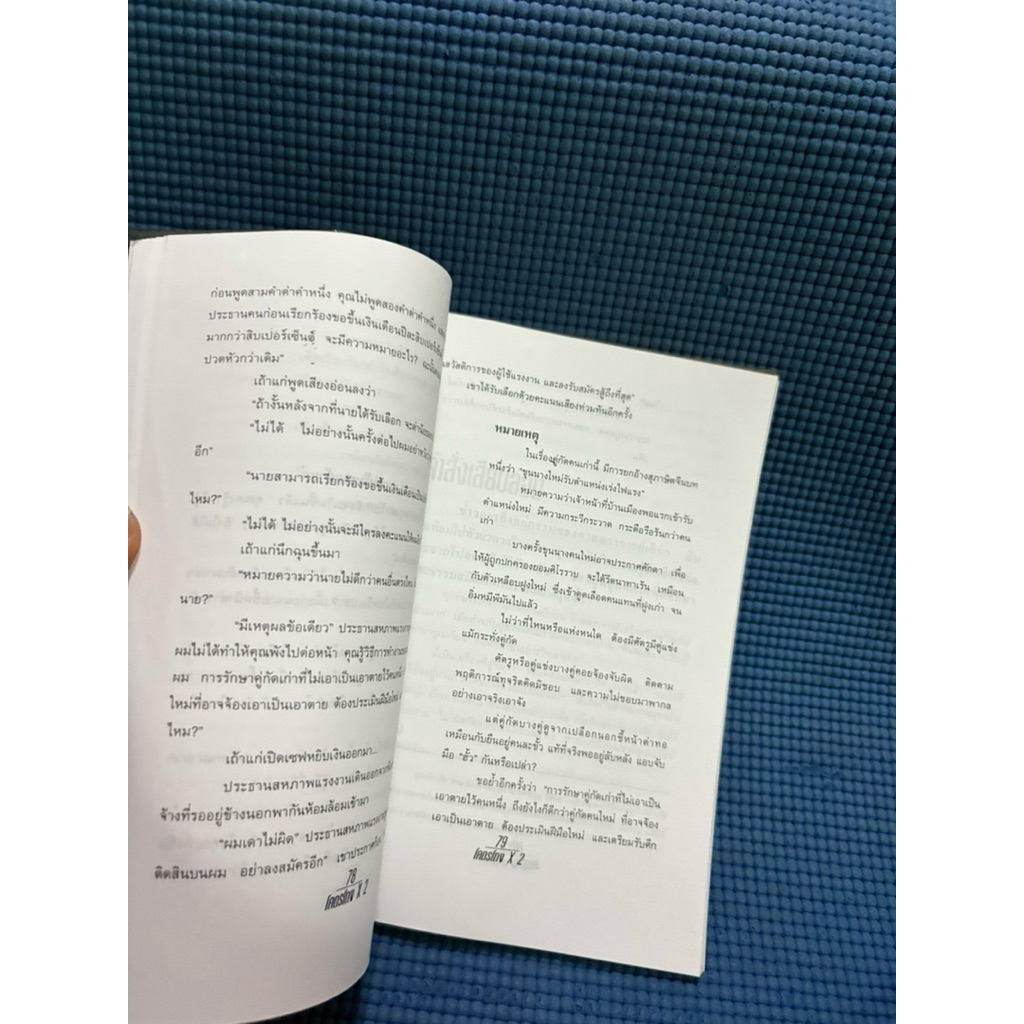 ก่อนพูดสามคำด่าคำหนึ่ง คุณไม่พูดสองคำด่าคำหนึ่ง
ประธานคนก่อนเรียกร้องขอขึ้นเงินเดือนปีละสิบเปอร์เซ็นต์
มากกว่าสิบเปอร์เซ็นต์ จะมีความหมายอะไร?
ปวดหัวกว่าเดิม"
เถ้าแก่พูดเสียงอ่อนลงว่า
"ถ้างั้นหลังจากที่นายได้รับเลือก จะด่าน้อยลง
"ไม่ได้ ไม่อย่างนั้นครั้งต่อไปผมอย่าหวัง
อีก"
"นายสามารถเรียกร้องขอขึ้นเงินเดือน
ไหม?"
"ไม่ได้ ไม่อย่างนั้นจะมีใครลงคะแนนให้
เถ้าแก่นึกฉุนขึ้นมา
"หมายความว่านายไม่ดีกว่าคนอื่น
นาย?"
"มีเหตุผลข้อเดียว" ประธานสหภาพแรงงาน
ผมไม่ได้ทำให้คุณพังไปต่อหน้า คุณรู้วิธีการทำงาน
ผม การรักษาคู่กัดเก่าที่ไม่เอาเป็นเอาตายไว้คนหนึ่ง
ใหม่ที่อาจจ้องเอาเป็นเอาตาย ต้องประเมินฝีมือใหม่
ไหม?"
เถ้าแก่เปิดเซฟหยิบเงินออกมา...
ประธานสหภาพแรงงานเดินออกจาก
จ้างที่รออยู่ข้างนอกพากันห้อมล้อมเข้ามา
"ผมเดาไม่ผิด" ประธานสหภาพแรงงาน
ติดสินบนผม อย่าลงสมัครอีก" เขาประกาศ
78
โคตรโกง X 2
สวัสดิการของผู้ใช้แรงงาน และลงรับสมัครสู้ถึงที่สุด"
เขาได้รับเลือกด้วยคะแนนเสียงท่วมท้นอีกครั้ง
หมายเหตุ
ในเรื่องคู่กัดคนเก่านี้ มีการยกอ้างสุภาษิตจีนบท
หนึ่งว่า "ขุนนางใหม่รับตำแหน่งเร่งไฟแรง"
หมายความว่าเจ้าหน้าที่บ้านเมืองพอแรกเข้ารับ
ตำแหน่งใหม่ มีความกระวีกระวาด กระตือรือร้นกว่าคน
เก่า
บางครั้งขุนนางคนใหม่อาจประกาศศักดา เพื่อ
ให้ผู้ถูกปกครองยอมศิโรราบ จะได้รีดนาทาเร้น เหมือน
กับตัวเหลือบฝูงใหม่ ซึ่งเข้าดูดเลือดคนแทนที่ฝูงเก่า จน
อิ่มหมีพีมันไปแล้ว
ไม่ว่าที่ไหนหรือแห่งหนใด ต้องมีศัตรูมีคู่แข่ง
แม้กระทั่งคู่กัด
ศัตรูหรือคู่แข่งบางคู่คอยจ้องจับผิด ติดตาม
พฤติการณ์ทุจริตคิดมิชอบ และความไม่ชอบมาพากล
อย่างเอาจริงเอาจัง
แต่คู่กัดบางคู่ดูจากเปลือกนอกชี้หน้าด่าทอ
เหมือนกับยืนอยู่คนละขั้ว แท้ที่จริงพออยู่ลับหลัง แอบจับ
มือ "ฮั้ว" กันหรือเปล่า?
ขอย้ำอีกครั้งว่า "การรักษาคู่กัดเก่าที่ไม่เอาเป็น
เอาตายไว้คนหนึ่ง ถึงยังไงก็ดีกว่าคู่กัดคนใหม่ ที่อาจจ้อง
เอาเป็นเอาตาย ต้องประเมินฝีมือใหม่ และเตรียมรับศึก
79
โคตรโกง X 2